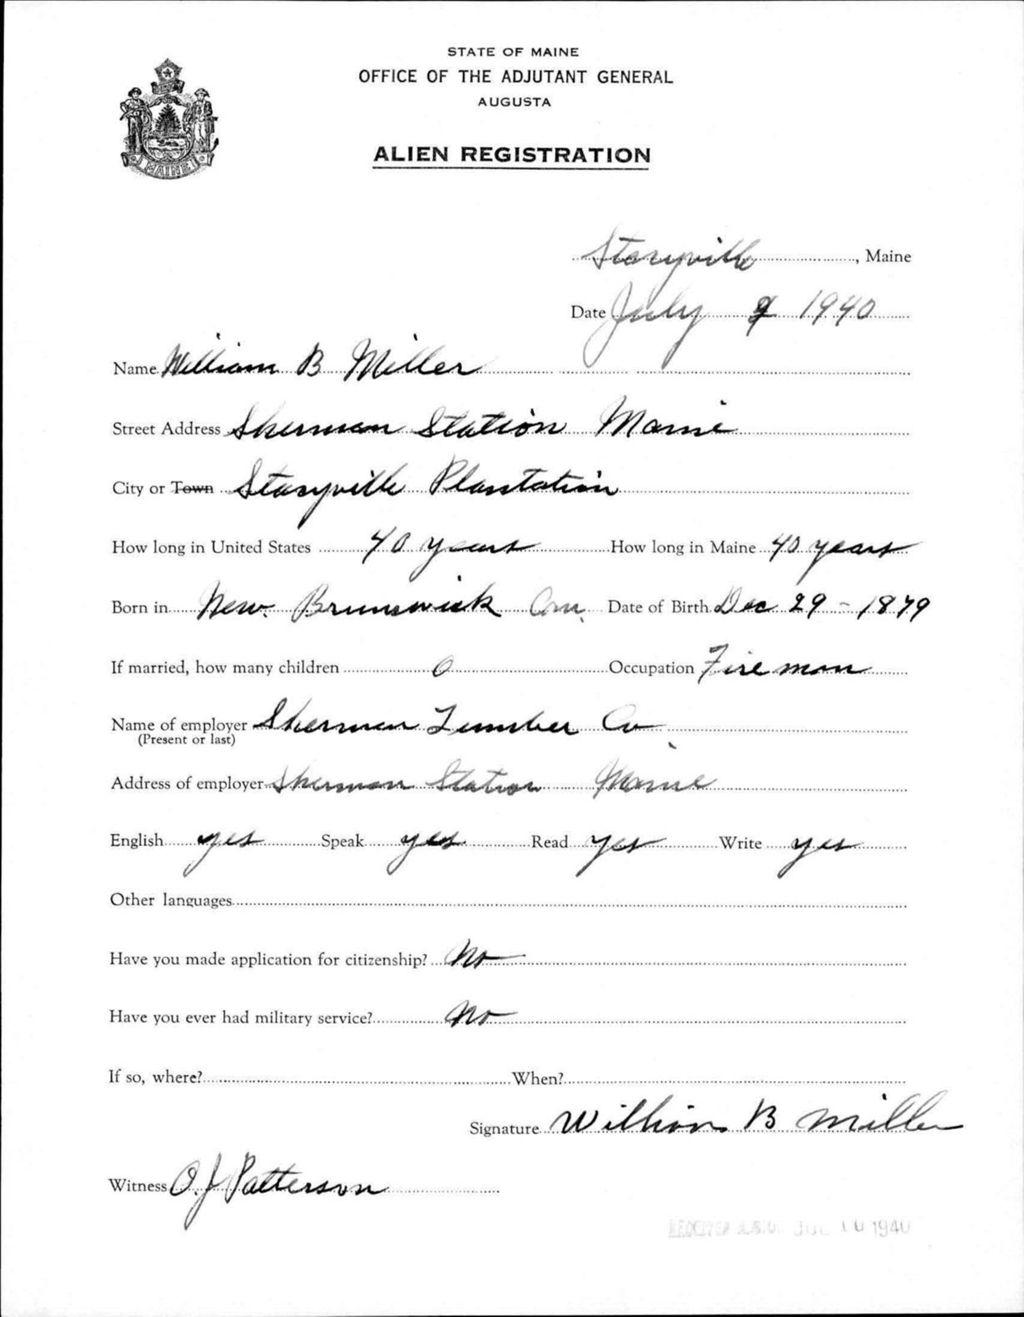 STATE OF MAINE
OFFICE OF THE ADJUTANT GENERAL
AUGUSTA
ALIEN REGISTRATION
MAINE
Stacyville, Maine
Date July 9 1940
Name William B Miller
Street Address Sherman Station Maine
City or Town Stacyville Plantation
How long in United States 40 years How long in Maine 40 years
Born in New Brunswick Can. Date of Birth Dec 29 - 1879
If married, how many children 0 Occupation Fireman
Name of employer Sherman Lumber Co
(Present or last)
Address of employer Sherman Station Maine
English yes Speak yes Read yes Write yes
Other languages
Have you made application for citizenship? No
Have you ever had military service? No
If so, where? When?
Signature William B Miller
Witness O. J Patterson
RECEIVED A.G.O. JUL 10 1940